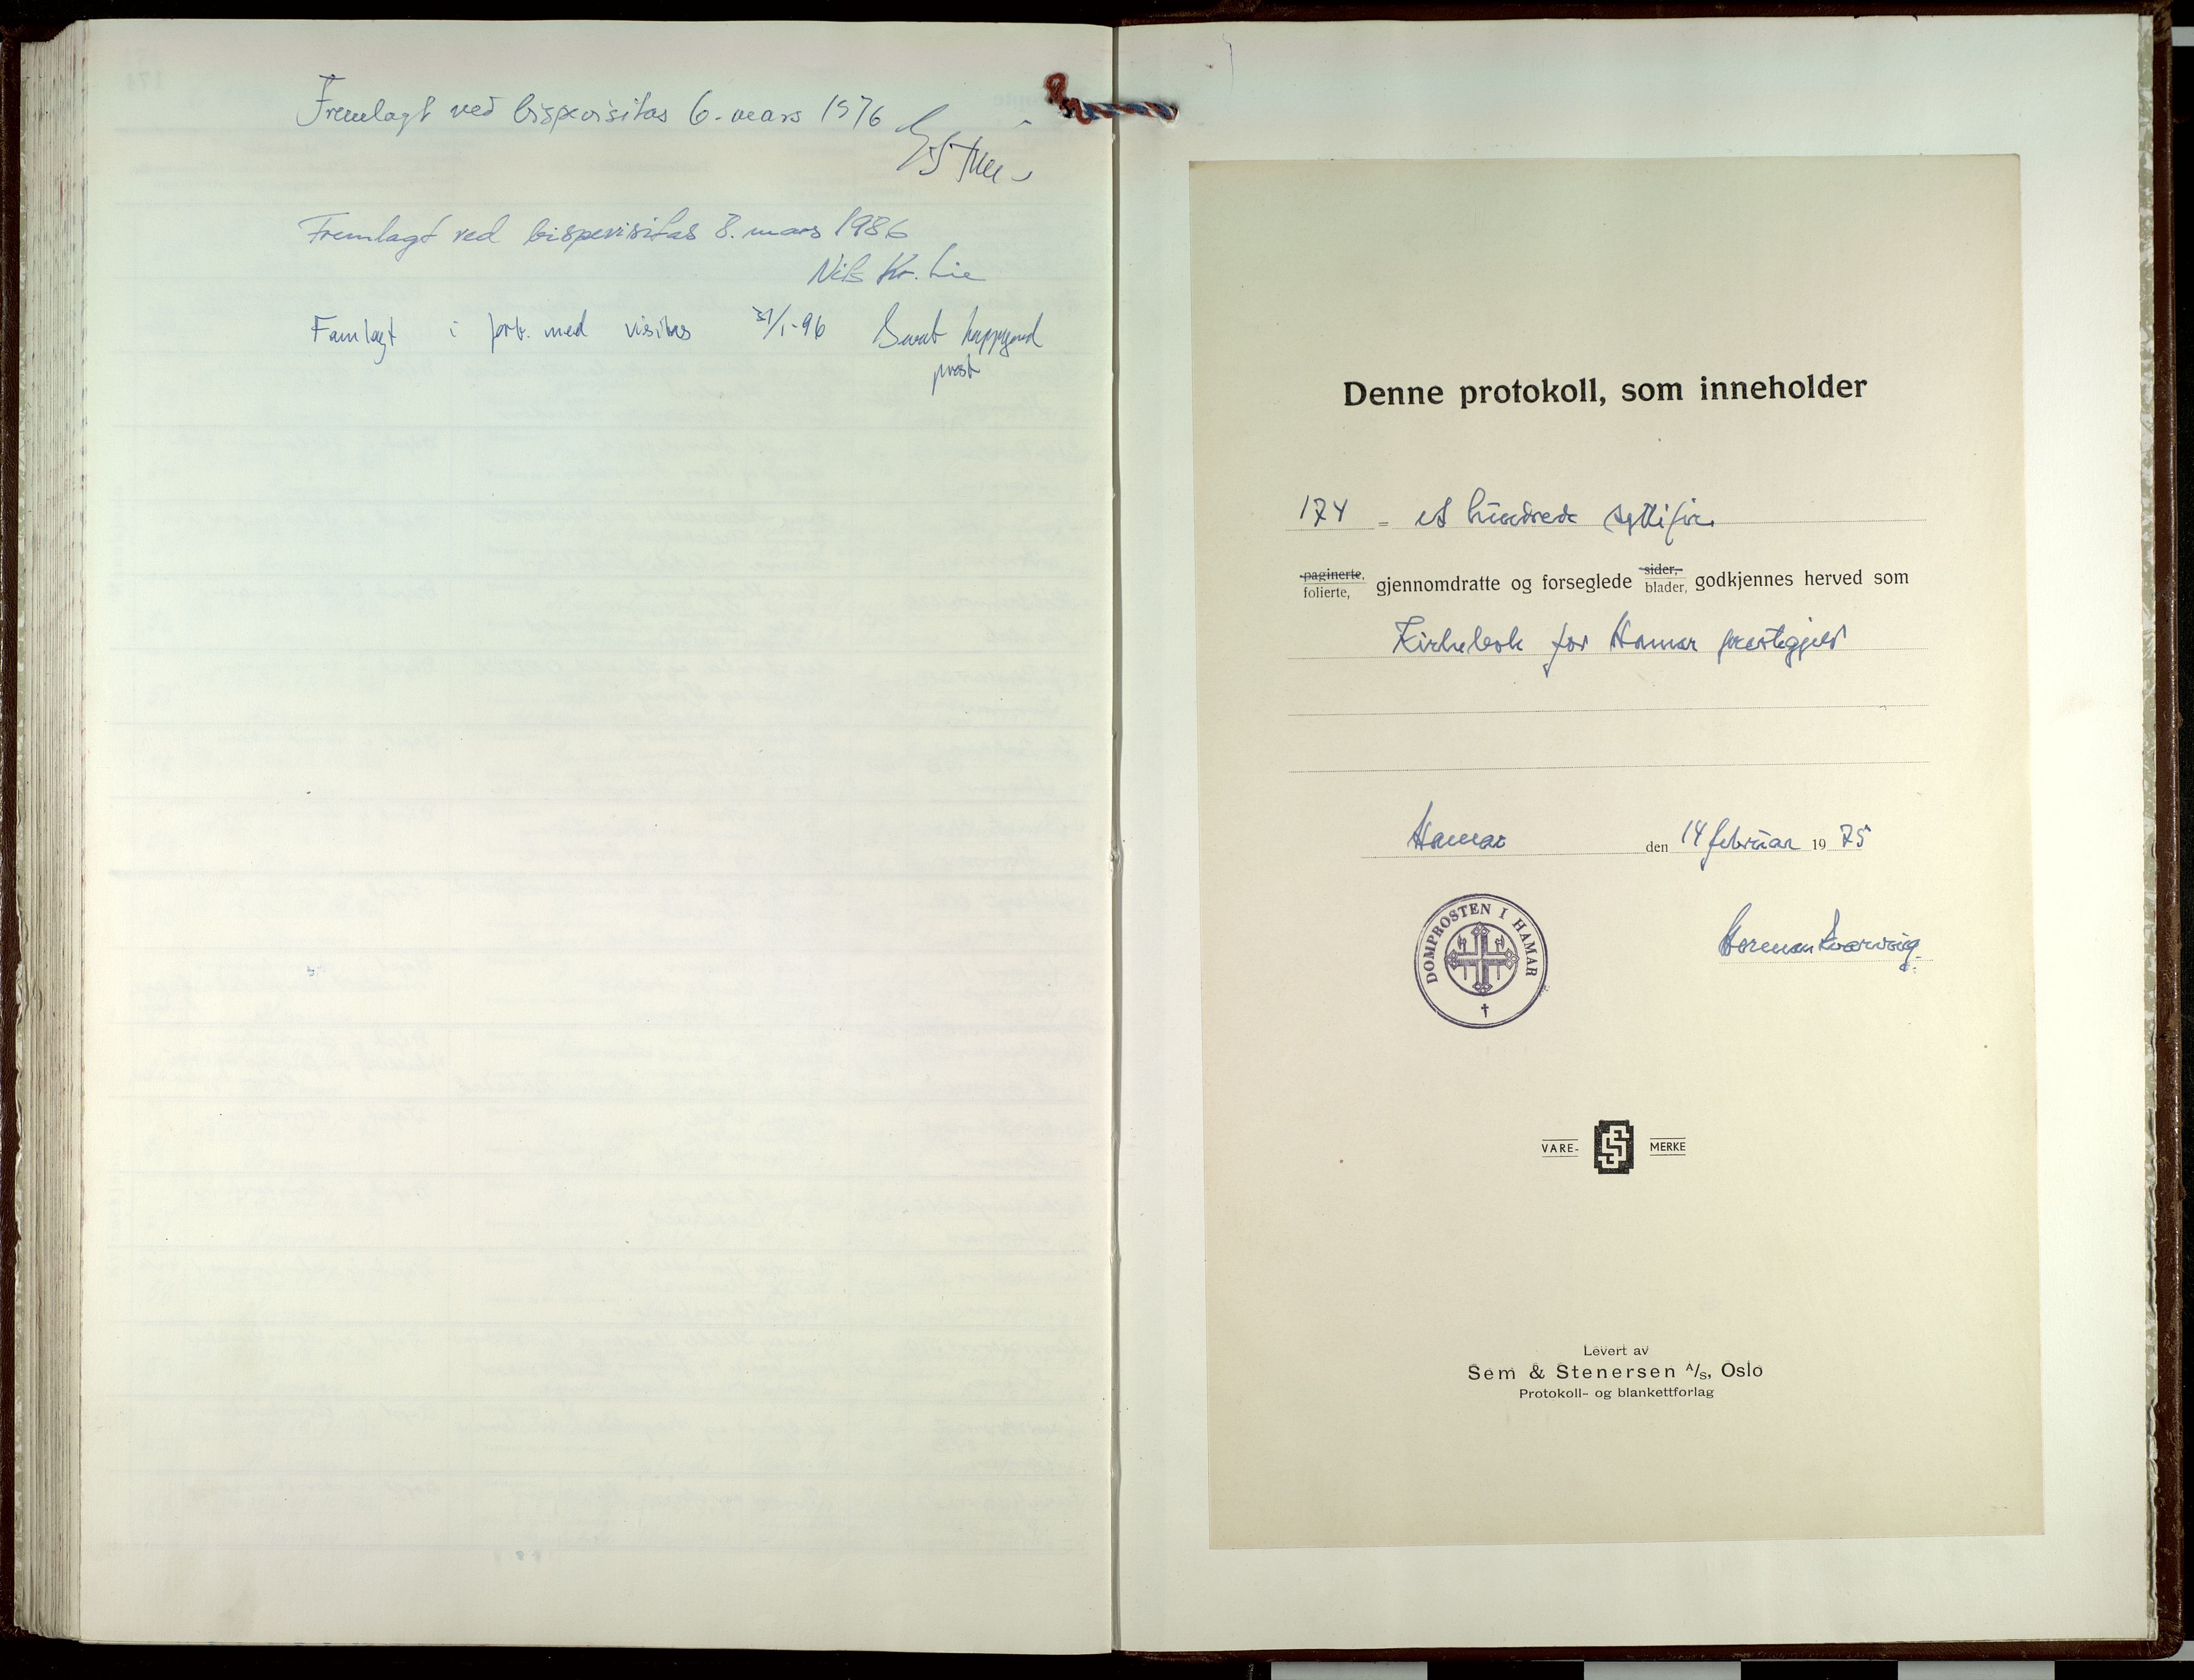 Fremlagt ved bispevisitas 6. mars 1976
Fremlagt ved bispevisitas 8. mars 1986
Nils Kr. Lie
Framlagt i forb. med visitas 31/1-96
prest
Denne protokoll, som inneholder
174 = et hundrede syttifire
paginerte, sider,
folierte, gjennomdratte og forseglede blader, godkjennes herved som
Kirkebok for Hamar prestegjeld
Hamar den 14 februar 1975
DOMPROSTEN I HAMAR
Herman
VARE- S MERKE
Levert av
Sem & Stenersen A/S, Oslo
Protokoll- og blankettforlag